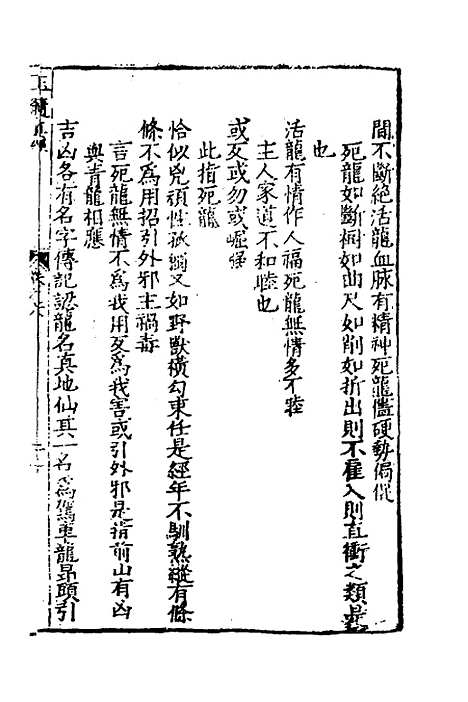 間不斷絕活龍血脉有精神死龍儘硬勢傴促
死龍如斷樹如曲尺如削如折出則不
雇入則直衝之類是
也
活龍有情作人福死龍無情多不睦
主人家道不和睦也
或反或勿或崛強
此指死龍
恰似兇頑性孤獨又如野獸橫勾東任是經年不馴熟縱有條
條不為用招引外邪主禍毒
言死龍無情不為我用反為我害或引外邪是指前山有凶
與青龍相應
吉凶各有名字傳記認龍名真地仙其一名為駕車龍昂頭引